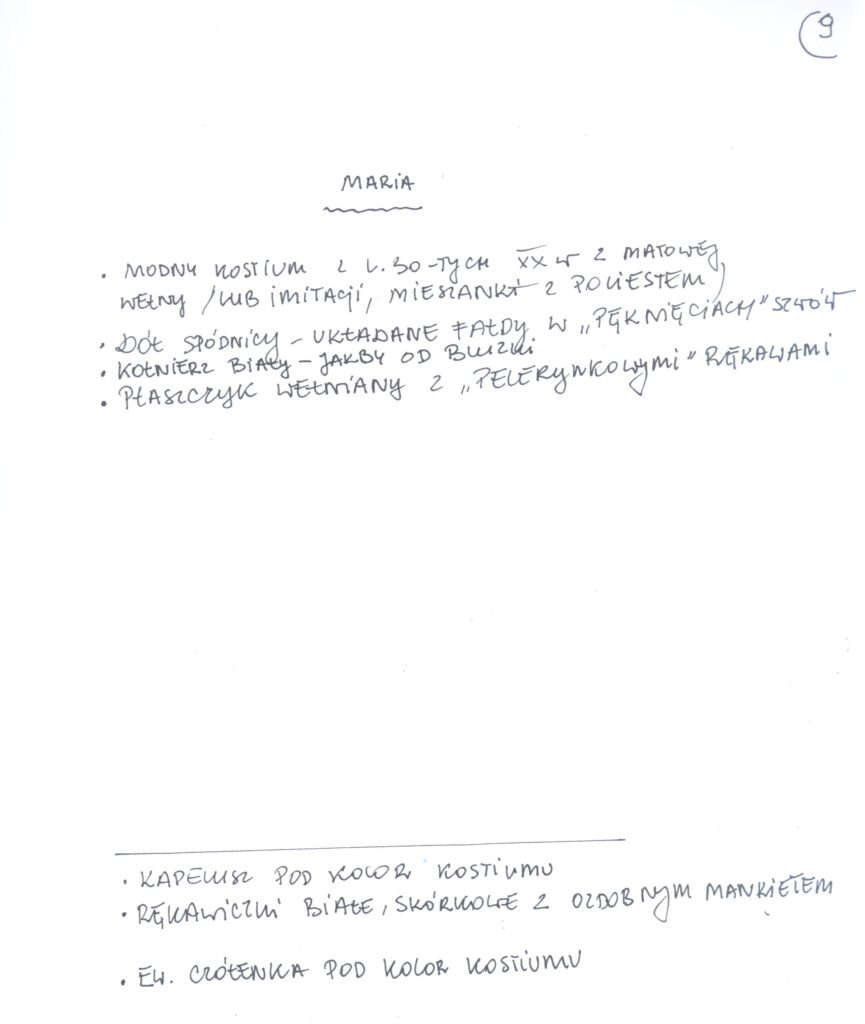 9
MARIA
• MODNY KOSTIUM Z L. 30-TYCH XX W Z MATOWEJ
WEŁNY /LUB IMITACJI, MIESZANKA Z POLIESTEM/
• DÓŁ SPÓDNICY – UKŁADANE FAŁDY W „PĘKNIĘCIACH" SZWÓW
• KOŁNIERZ BIAŁY – JAKBY OD BLUZKI
• PŁASZCZYK WEŁNIANY Z „PELERYNKOWYMI" RĘKAWAMI
• KAPELUSZ POD KOLOR KOSTIUMU
• RĘKAWICZKI BIAŁE, SKÓRKOWE Z OZDOBNYM MANKIETEM
• EW. CZÓŁENKA POD KOLOR KOSTIUMU